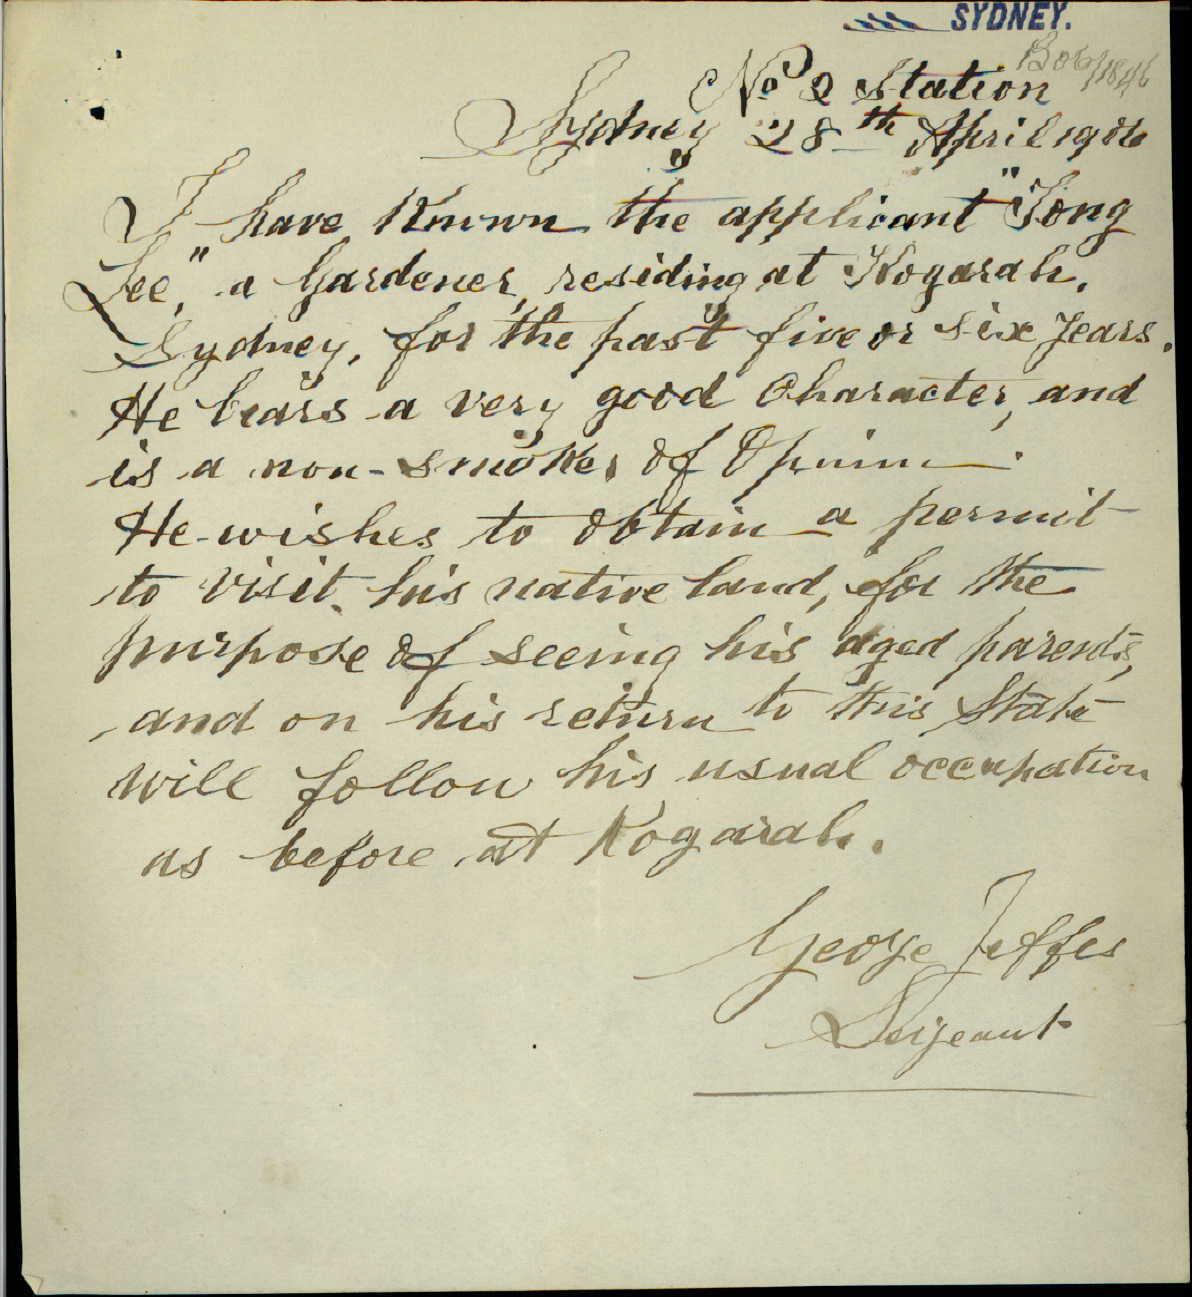 SYDNEY.
No 2 Station
Sydney 28th April 1906
I have Known the applicant "Tong
Lee," a Gardener, residing at Kogarah,
Sydney, for the past five or six years.
He bears a very good Character, and
is a non-smoker of Opium.
He wishes to obtain a permit
to visit his native land, for the
purpose of seeing his aged parents,
and on his return to this State
will follow his usual occupation
as before at Kogarah.
George Jeffes
Sergeant